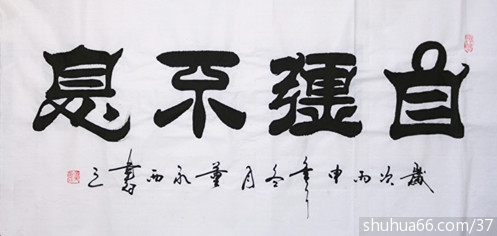 自彊不息
歲次丙申年冬月董永西書之
shuhua66.com/37